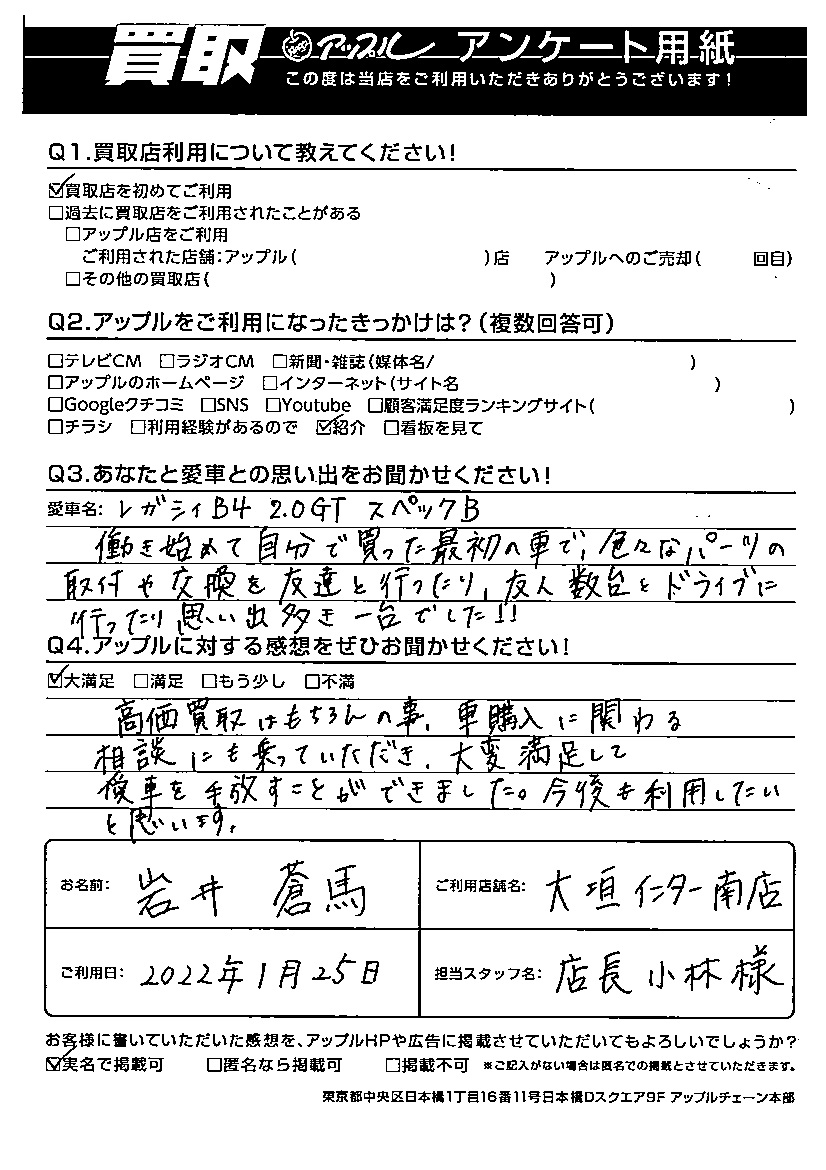 買取 アップル アンケート用紙
この度は当店をご利用いただきありがとうございます!
Q1.買取店利用について教えてください!
☑買取店を初めてご利用
□過去に買取店をご利用されたことがある
□アップル店をご利用
ご利用された店舗:アップル( )店 アップルへのご売却( 回目)
□その他の買取店( )
Q2.アップルをご利用になったきっかけは?(複数回答可)
□テレビCM □ラジオCM □新聞・雑誌(媒体名/ )
□アップルのホームページ □インターネット(サイト名 )
□Googleクチコミ □SNS □Youtube □顧客満足度ランキングサイト( )
□チラシ □利用経験があるので ☑紹介 □看板を見て
Q3.あなたと愛車との思い出をお聞かせください!
愛車名: レガシィB4 2.0GT スペックB
働き始めて自分で買った最初の車で、色々なパーツの
取付や交換を友達と行ったり、友人数台とドライブに
行ったり思い出多き一台でした!!
Q4.アップルに対する感想をぜひお聞かせください!
☑大満足 □満足 □もう少し □不満
高価買取はもちろんの事、車購入に関わる
相談にも乗っていただき、大変満足して
愛車を手放すことができました。今後も利用したい
と思います。
お名前: 岩井 蒼馬 ご利用店舗名: 大垣インター南店
ご利用日: 2022年1月25日 担当スタッフ名: 店長 小林様
お客様に書いていただいた感想を、アップルHPや広告に掲載させていただいてもよろしいでしょうか?
☑実名で掲載可 □匿名なら掲載可 □掲載不可 ※ご記入がない場合は匿名での掲載とさせていただきます。
東京都中央区日本橋1丁目16番11号日本橋Dスクエア9F アップルチェーン本部